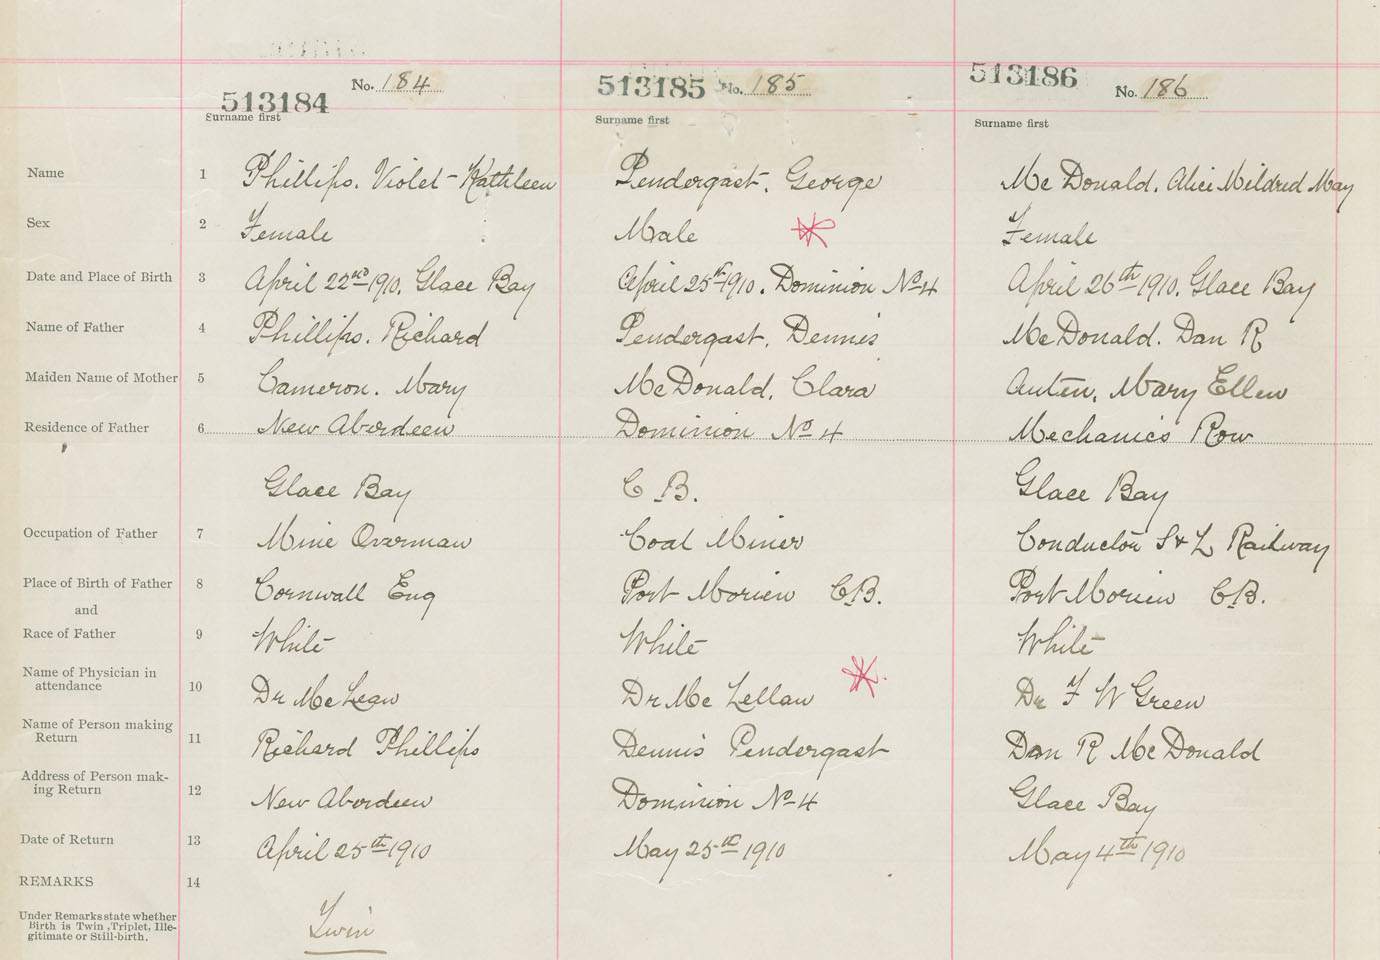 513184 No. 184 513185 No. 185 513186 No. 186
Surname first Surname first Surname first
Name 1 Phillips, Violet Kathleen Pendergast, George Mc Donald, Alice Mildred May
Sex 2 Female Male Female
Date and Place of Birth 3 April 22nd 1910, Glace Bay April 25th 1910. Dominion No 4 April 26th 1910, Glace Bay
Name of Father 4 Phillips, Richard Pendergast, Dennis McDonald, Dan R
Maiden Name of Mother 5 Cameron, Mary McDonald, Clara Auten, Mary Ellen
Residence of Father 6 New Aberdeen Dominion No 4 Mechanics Row
Glace Bay C.B. Glace Bay
Occupation of Father 7 Mine Overman Coal Miner Conductor S & L Railway
Place of Birth of Father 8 Cornwall Eng Port Morien C.B. Port Morien C.B.
and
Race of Father 9 White White White
Name of Physician in
attendance 10 Dr McLean Dr McLellan Dr F W Green
Name of Person making
Return 11 Richard Phillips Dennis Pendergast Dan R McDonald
Address of Person mak-
ing Return 12 New Aberdeen Dominion No 4 Glace Bay
Date of Return 13 April 25th 1910 May 25th 1910 May 4th 1910
REMARKS 14
Under Remarks state whether
Birth is Twin, Triplet, Ille-
gitimate or Still-birth.
Twin